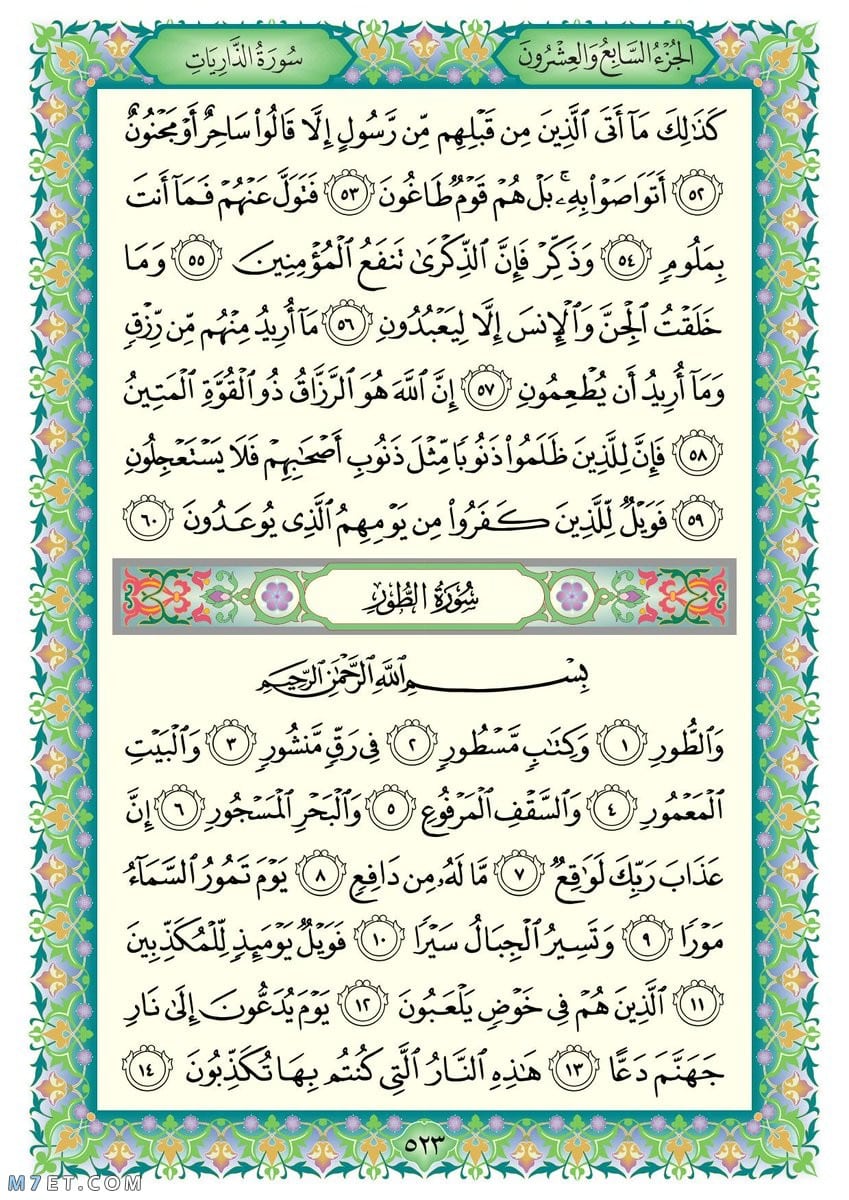 الجزء السابع والعشرون
سورة الذاريات
كَذَٰلِكَ مَآ أَتَى ٱلَّذِينَ مِن قَبۡلِهِم مِّن رَّسُولٍ إِلَّا قَالُواْ سَاحِرٌ أَوۡ مَجۡنُونٌ
٥٢ أَتَوَاصَوۡاْ بِهِۦۚ بَلۡ هُمۡ قَوۡمٌ طَاغُونَ ٥٣ فَتَوَلَّ عَنۡهُمۡ فَمَآ أَنتَ
بِمَلُومٍ ٥٤ وَذَكِّرۡ فَإِنَّ ٱلذِّكۡرَىٰ تَنفَعُ ٱلۡمُؤۡمِنِينَ ٥٥ وَمَا
خَلَقۡتُ ٱلۡجِنَّ وَٱلۡإِنسَ إِلَّا لِيَعۡبُدُونِ ٥٦ مَآ أُرِيدُ مِنۡهُم مِّن رِّزۡقٍ
وَمَآ أُرِيدُ أَن يُطۡعِمُونِ ٥٧ إِنَّ ٱللَّهَ هُوَ ٱلرَّزَّاقُ ذُو ٱلۡقُوَّةِ ٱلۡمَتِينُ
٥٨ فَإِنَّ لِلَّذِينَ ظَلَمُواْ ذَنُوبًا مِّثۡلَ ذَنُوبِ أَصۡحَٰبِهِمۡ فَلَا يَسۡتَعۡجِلُونِ
٥٩ فَوَيۡلٌ لِّلَّذِينَ كَفَرُواْ مِن يَوۡمِهِمُ ٱلَّذِي يُوعَدُونَ ٦٠
سُورَةُ الطُّورِ
بِسۡمِ ٱللَّهِ ٱلرَّحۡمَٰنِ ٱلرَّحِيمِ
وَٱلطُّورِ ١ وَكِتَٰبٍ مَّسۡطُورٍ ٢ فِي رَقٍّ مَّنشُورٍ ٣ وَٱلۡبَيۡتِ
ٱلۡمَعۡمُورِ ٤ وَٱلسَّقۡفِ ٱلۡمَرۡفُوعِ ٥ وَٱلۡبَحۡرِ ٱلۡمَسۡجُورِ ٦ إِنَّ
عَذَابَ رَبِّكَ لَوَٰقِعٌ ٧ مَّا لَهُۥ مِن دَافِعٍ ٨ يَوۡمَ تَمُورُ ٱلسَّمَآءُ
مَوۡرًا ٩ وَتَسِيرُ ٱلۡجِبَالُ سَيۡرًا ١٠ فَوَيۡلٌ يَوۡمَئِذٍ لِّلۡمُكَذِّبِينَ
١١ ٱلَّذِينَ هُمۡ فِي خَوۡضٍ يَلۡعَبُونَ ١٢ يَوۡمَ يُدَعُّونَ إِلَىٰ نَارِ
جَهَنَّمَ دَعًّا ١٣ هَٰذِهِ ٱلنَّارُ ٱلَّتِي كُنتُم بِهَا تُكَذِّبُونَ ١٤
٥٢٣
M7ET.COM